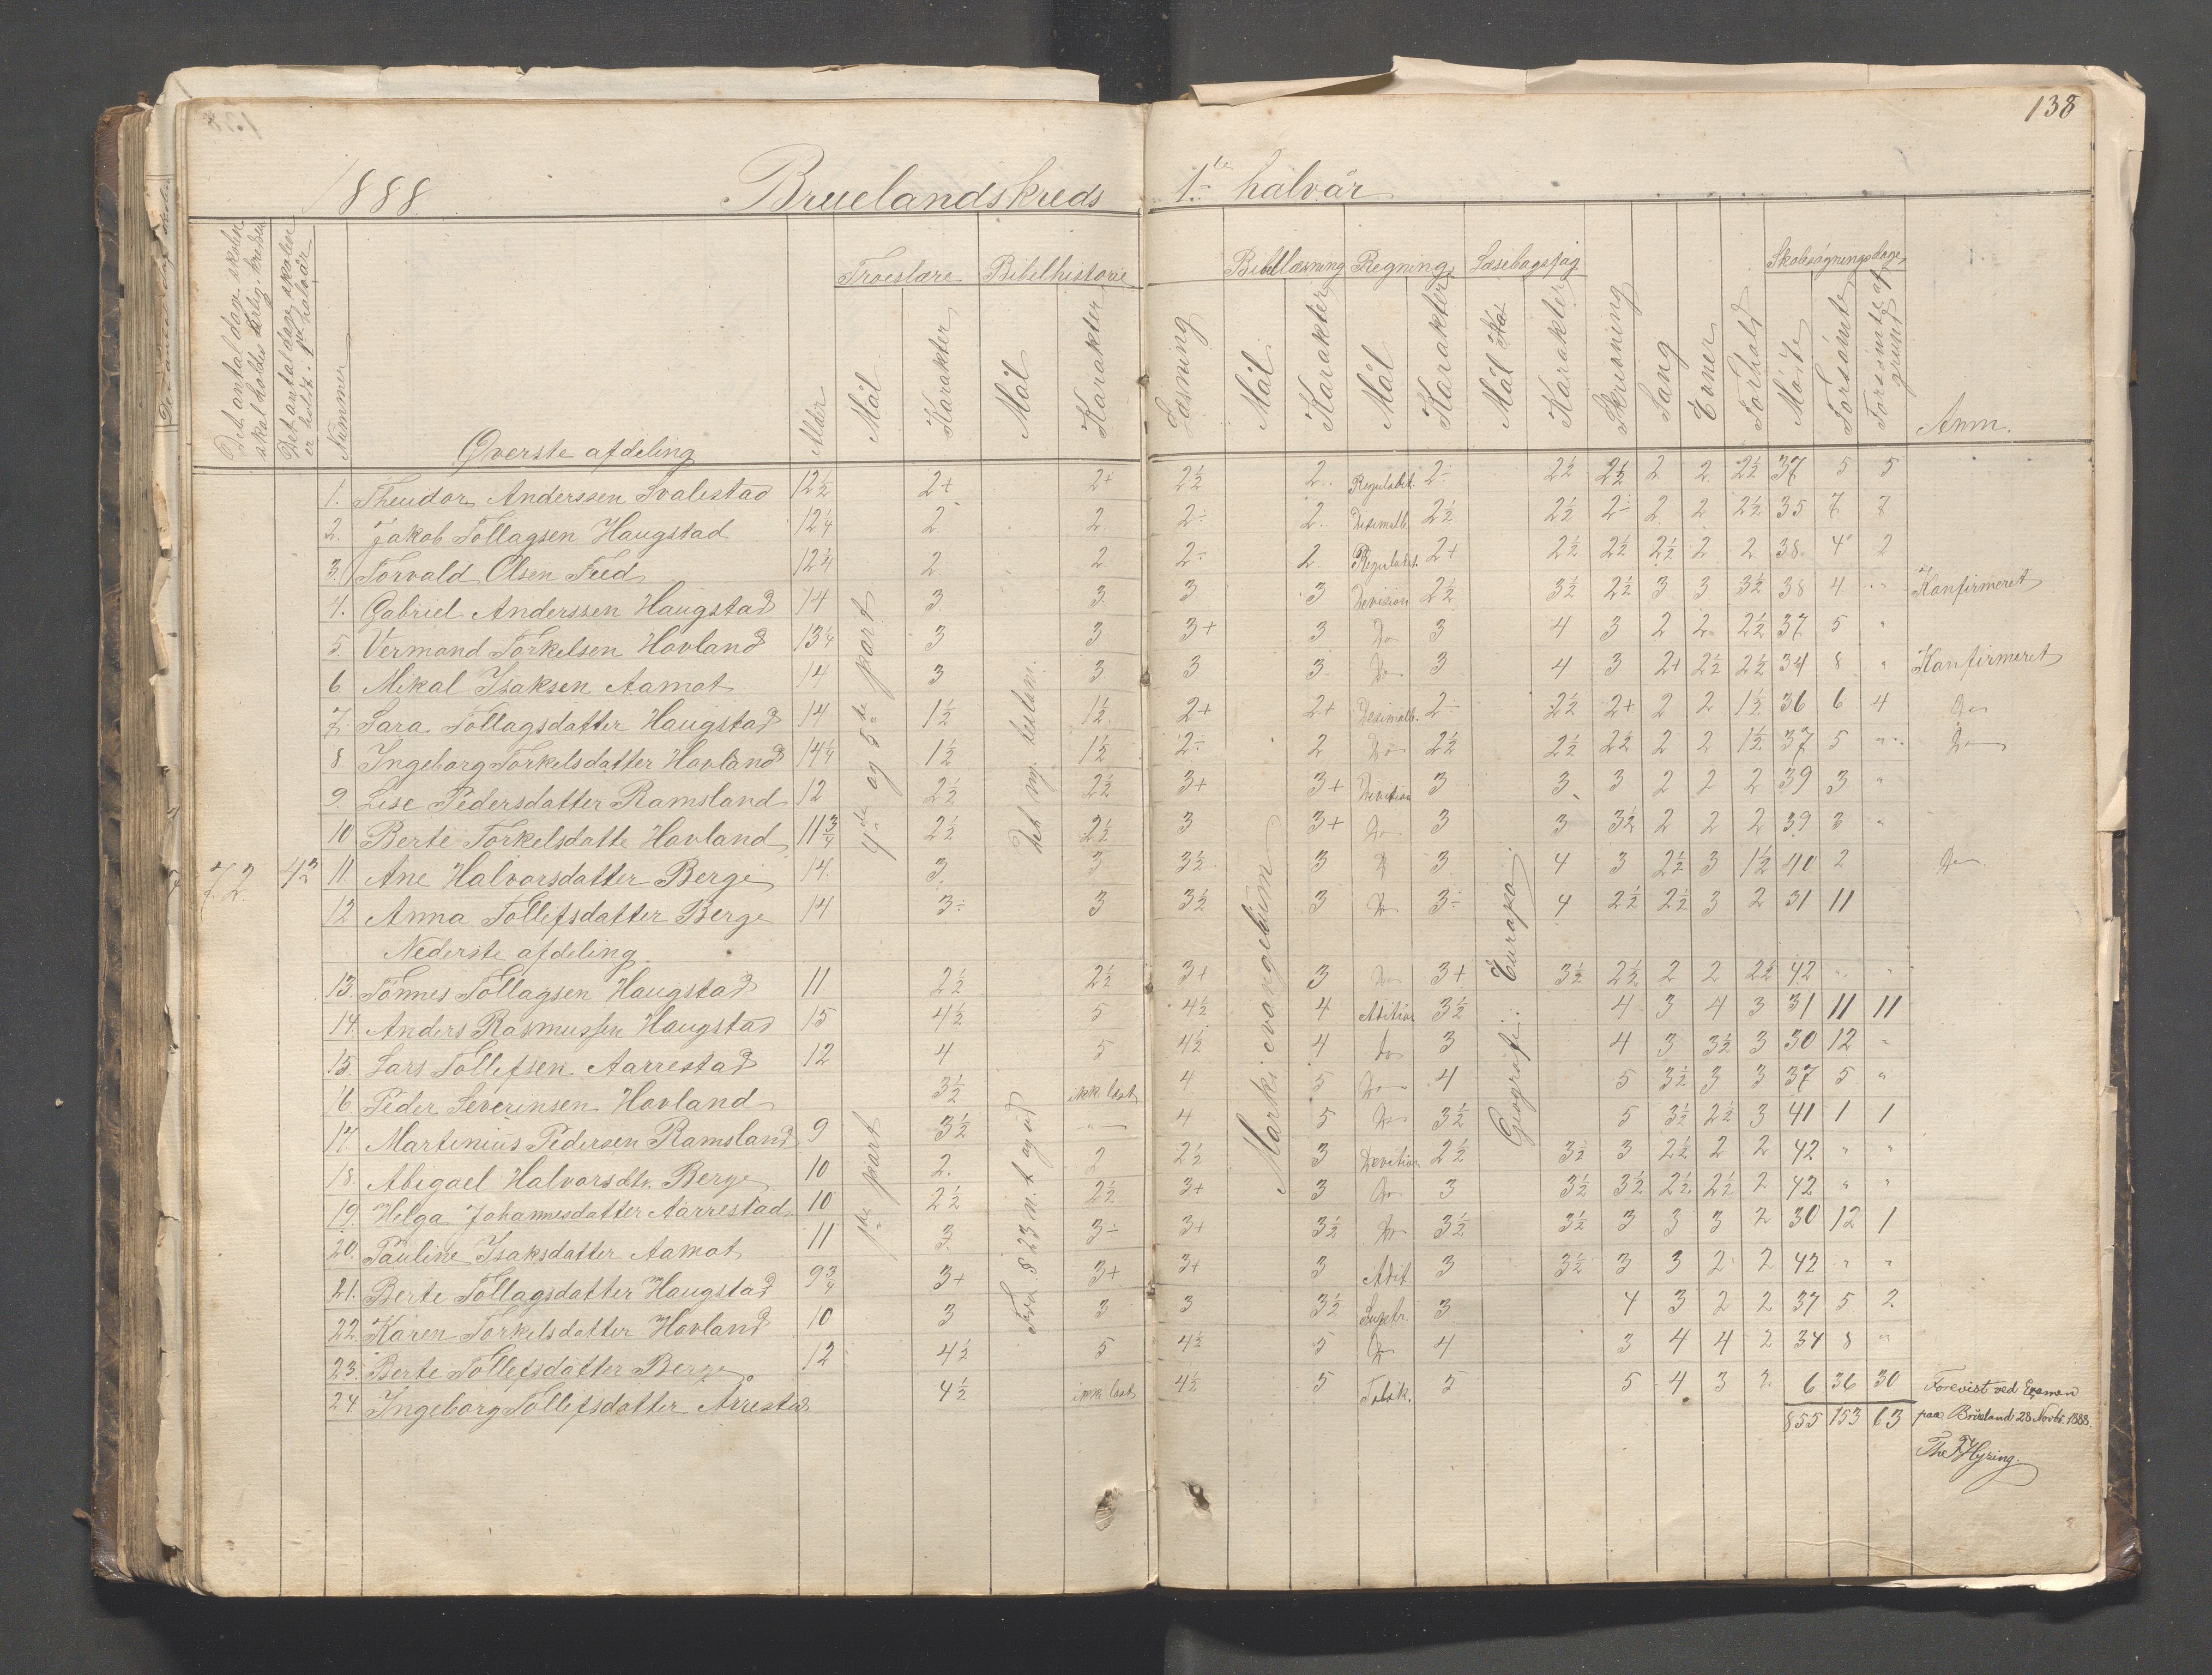 138
1888 Bruelandskreds 1ste halvår
Det antal dage skolen skal holdes årlig i kredsen
Det antal dage skolen er holdt i 1ste halvår
Nummer
Øverste afdeling
Alder
Troeslære Mål Karakter
Bibelhistorie Mål Karakter
Læsning
Bibellæsning Mål Karakter
Regning Mål Karakter
Læsebogsfag Mål Karakter
Skrivning
Sang
Evner
Forhold
Skolesøgningsdage Møtte Forsømte Forsømte af grund
Anm.
72 42
4de og 5te part
Det ny. testam.
Marki evangelium
Geografi: Europa
1. Theodor Anderssen Svalestad 12½ 2+ 2+ 2½ 2 Reguladet. 2÷ 2½ 2½ 2 2 2½ 37 5 5
2. Jakob Tollagsen Haugstad 12¼ 2 2 2÷ 2 Desimalb. 2½ 2½ 2÷ 2 2 2½ 35 7 7
3. Torvald Olsen Feed 12¼ 2 2 2÷ 2 Reguladet. 2+ 2½ 2½ 2½ 2 2 38 4 2
4. Gabriel Anderssen Haugstad 14 3 3 3 3 Devision 2½ 3½ 2½ 3 3 3½ 38 4 " Konfirmeret
5. Vermond Torkelsen Hovland 13¼ 3 3 3+ 3 Do 3 4 3 2 2 2½ 37 5 "
6. Mikal Isaksen Aamot 14 3 3 3 3 Do 3 4 3 2+ 2½ 2½ 34 8 " Konfirmeret
7. Sara Tollagsdatter Haugstad 14 1½ 1½ 2+ 2+ Desimalb. 2÷ 2½ 2+ 2 2 1½ 36 6 4 Do
8 Ingeborg Torkelsdatter Hovland 14¼ 1½ 1½ 2÷ 2 Do 2½ 2½ 2½ 2 2 1½ 37 5 " Do
9. Lise Pedersdatter Ramsland 12 2½ 2½ 3+ 3+ Devition 3 3 3 2 2 2 39 3 "
10 Berte Torkelsdatte Hovland 11¾ 2½ 2½ 3 3+ Do 3 3 3½ 2 2 2 39 3 "
11 Ane Halvorsdatter Berge 14. 3 3 3½ 3 D 3 4 3 2½ 3 1½ 40 2 Do
12 Anna Tollifsdatter Berge 14 3÷ 3 3½ 3 Do 3÷ 4 2½ 2½ 3 2 31 11
Nederste afdeling.
1ste part
Fra § 23 n. t og ud
13. Tønnes Tollagsen Haugstad 11 2½ 2½ 3+ 3 Do 3+ 3½ 2½ 2 2 2½ 42 " "
14. Anders Rasmussen Haugstad 15 4½ 5 4½ 4 Adition 3½ 4 3 4 3 31 11 11
15. Lars Tollefsen Aarrestad 12 4 5 4½ 4 do 3 4 3 3½ 3 30 12 "
16 Peder Severinsen Hovland 3½ ikk. læst 4 5 Do 4 5 3½ 3 3 37 5 "
17. Martinius Pedersen Ramsland 9 3½ " 4 5 Do 3½ 5 3½ 2½ 3 41 1 1
18. Abigael Halvorsdtr. Berge 10 2. 2 2½ 3 Devition 2½ 3½ 3 2½ 2 2 42 " "
19. Helga Johannesdatter Aarrestad 10 2½ 2½ 3+ 3 Do 3 3½ 3½ 2½ 2½ 2 42 " "
20. Pauline Isaksdatter Aamot 11 3 3÷ 3+ 3½ Do 3½ 3½ 3 3 3 2 30 12 1
21. Berte Tollagsdatter Haugstad 9¾ 3+ 3+ 3+ 3 Adit. 3 3½ 3 3 2 2 42 " "
22 Karen Torkelsdatter Hovland 10 3 3 3 3½ Suptr. 3 4 3 2 2 37 5 2
23. Berte Tollefsdatter Berge 12 4½ 5 4½ 5 Do 4 3 4 4 2 34 8 "
24 Ingeborg Tollifsdatter Årrestad 4½ ikk. læst 4½ 5 5 5 4 3 2 6 36 30
855 153 63
Forevist ved Examen
paa Brueland 28 Novbr. 1888.